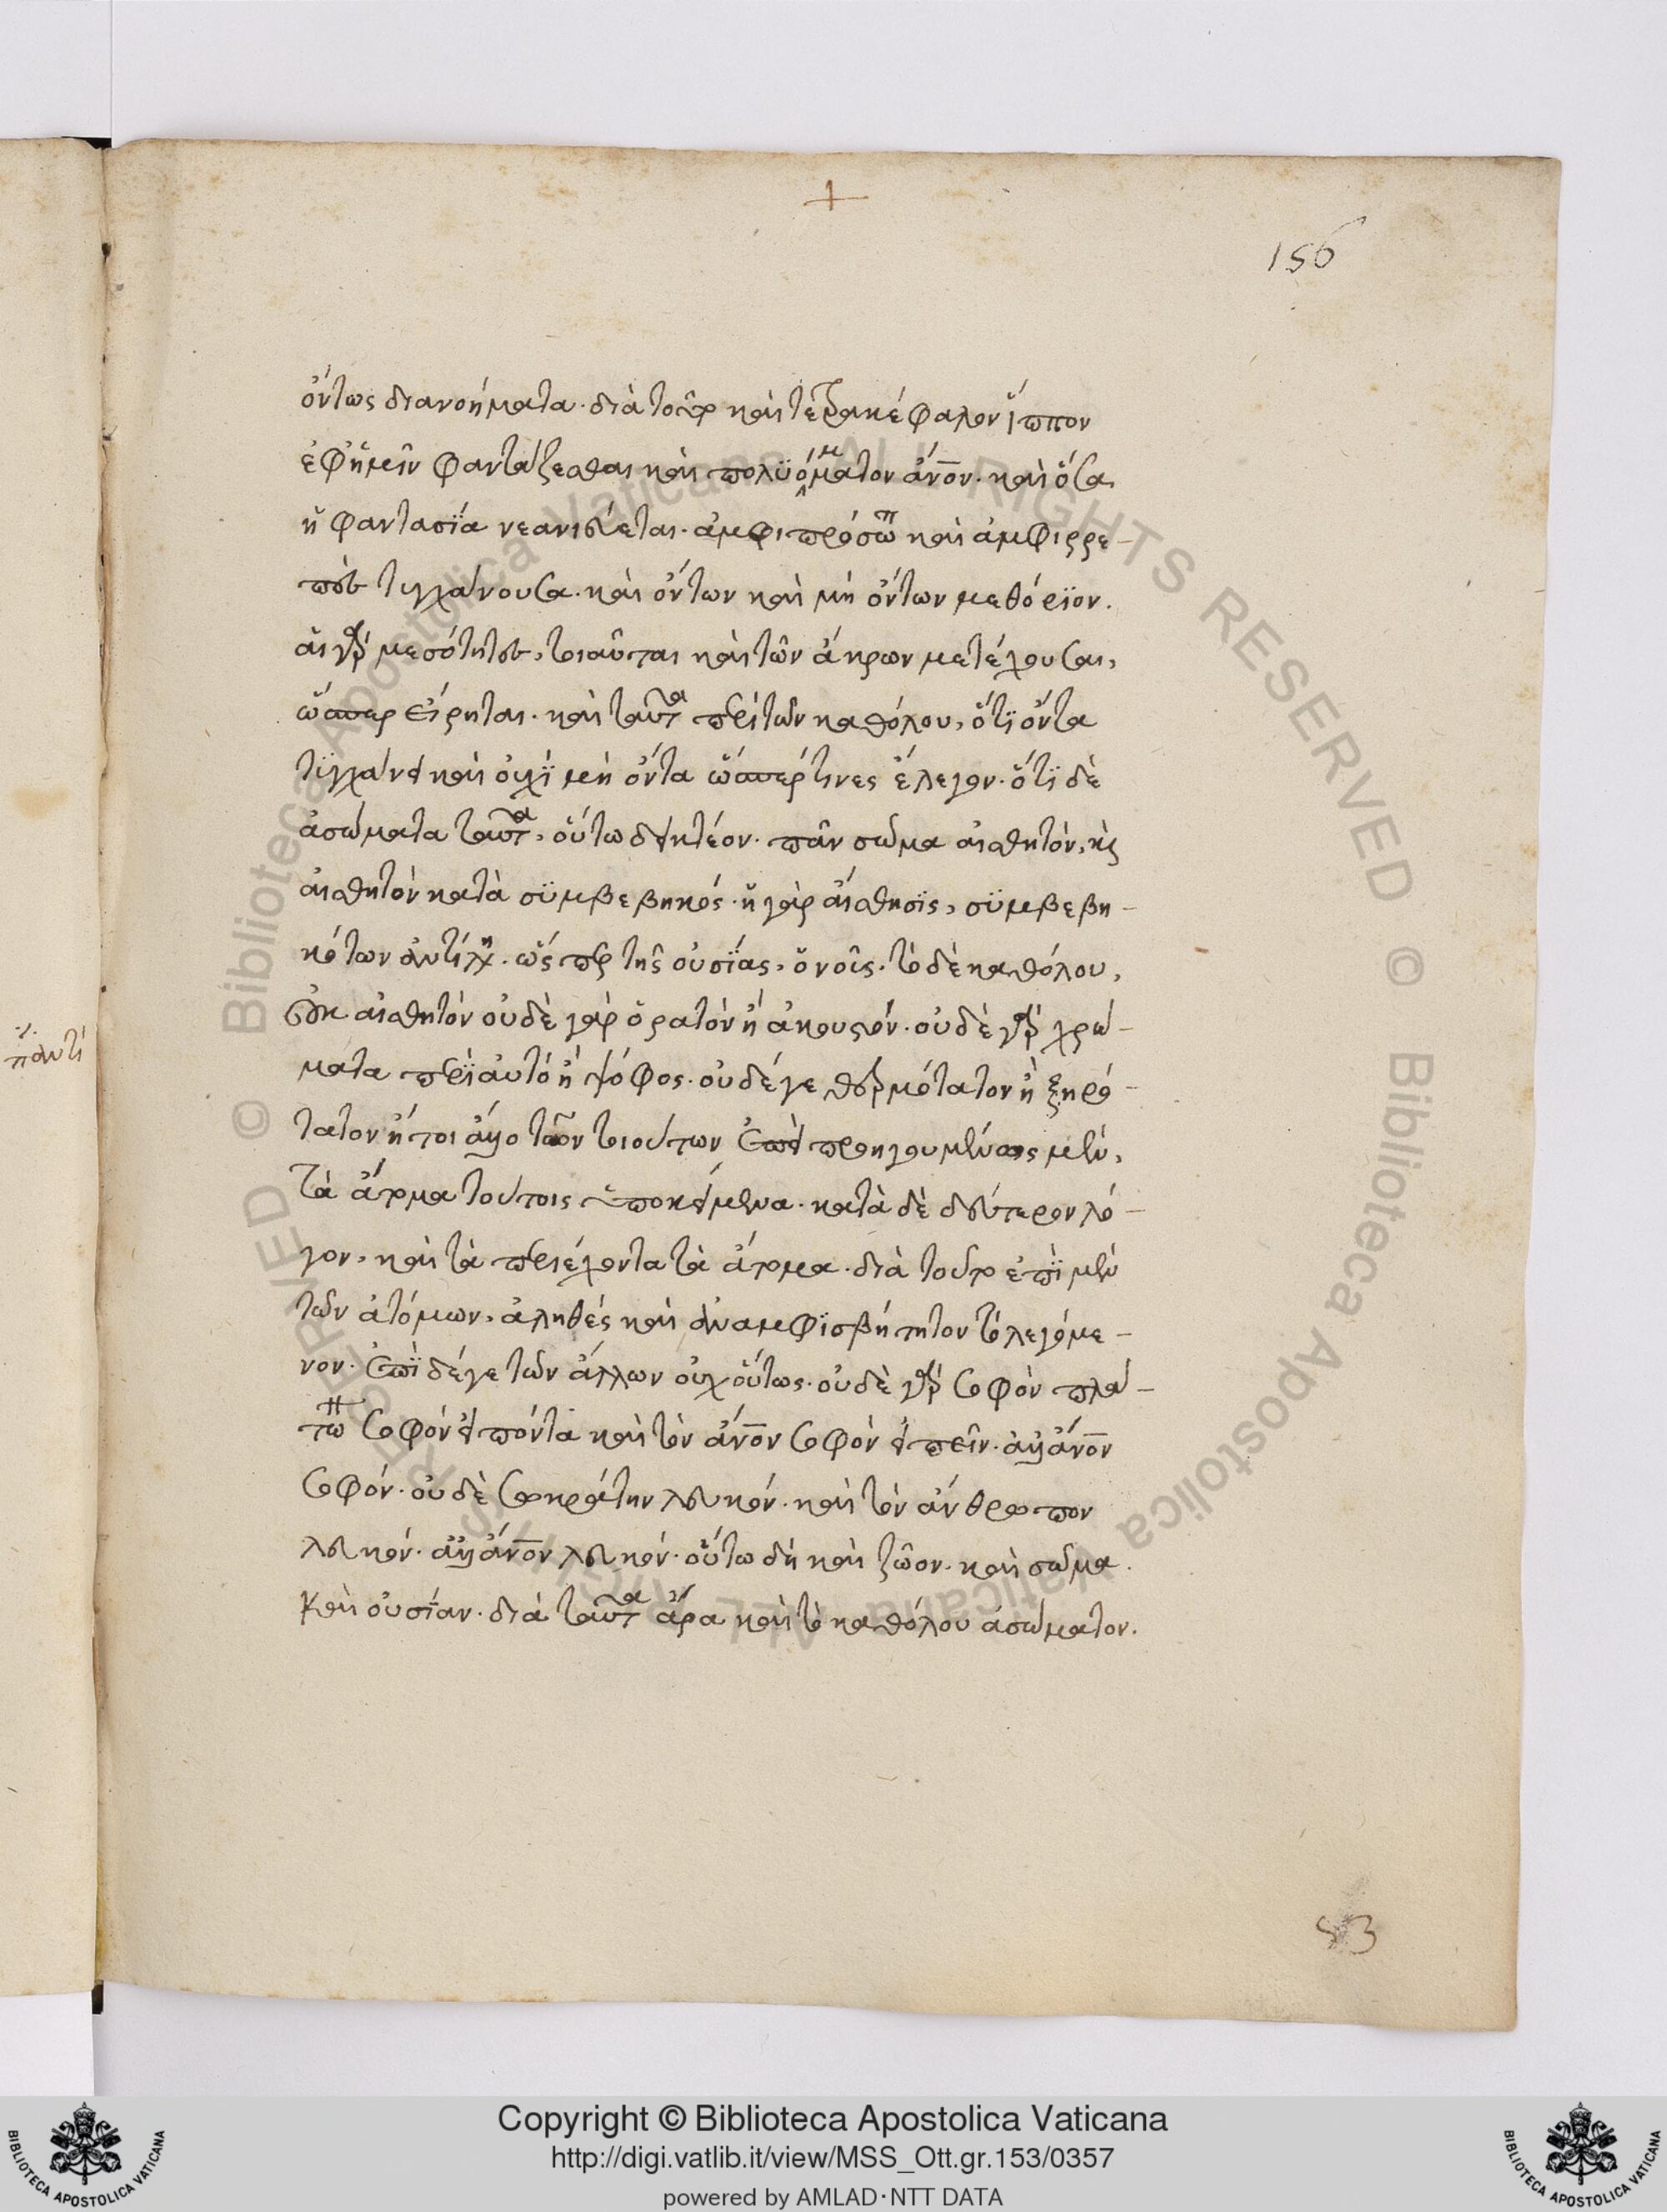 156
ὄντως διανοήματα· διὰ τοῦτο καὶ τετρακέφαλον ἵππον
ἐφ' ἡμῖν φαντάζεσθαι καὶ πολυόμματον ἄνον· καὶ ὅσα
ἡ φαντασΐα νεανιεύεται· ἀμφιπρόσωπ καὶ ἀμφιρρε-
πὴς τυγχάνουσα· καὶ ὄντων καὶ μὴ ὄντων μεθόριον.
αἱ γὰρ μεσότητες, τοιαῦται καὶ τῶν ἄκρων μετέχουσαι,
ὥσπερ εἴρηται· καὶ ταῦτα περὶ τῶν καθόλου, ὅτι ὄντα
τυγχάνει καὶ οὐχὶ μὴ ὄντα ὥσπερ τινες ἔλεγον· ὅτι δὲ
ἀσώματα ταῦτα, οὕτω δεικτέον· πᾶν σῶμα αἰσθητόν, κς
αἰσθητὸν κατὰ συμβεβηκός· ἡ γὰρ αἴσθησις, συμβεβη-
κότων ἀντιλη· ὥσπερ τῆς οὐσίας, ὁ νοῦς· τὸ δὲ καθόλου,
οὐκ αἰσθητόν οὐδὲ γὰρ ὁρατὸν ἢ ἀκουστόν· οὐδὲ γὰρ χρώ-
ματα περὶ αὐτό ἢ ψόφος· οὐδέ γε θερμότατον ἢ ξηρό-
τατον ἤτοι ἄλλο τῶν τοιούτων ἐπεὶ προηγουμένως μὲν,
τὰ ἄτομα τούτοις ὑποκείμενα· κατὰ δὲ δεύτερον λό-
γον, καὶ τὰ περιέχοντα τὰ ἄτομα· διὰ τοῦτο ἐπὶ μὲν
τῶν ἀτόμων, ἀληθές καὶ ἀναμφισβήτητον τὸ λεγόμε-
νον· ἐπὶ δέ γε τῶν ἄλλων οὐχ οὕτως· οὐδὲ γὰρ σοφὸν πλά-
τω σοφόν εἰπόντα καὶ τὸν ἄνον σοφόν εἰπεῖν· ἀλλ' ἄνον
σοφόν· οὐδὲ σωκράτην λευκόν· καὶ τὸν ἄνθρωπον
λευκόν· ἀλλ' ἄνον λευκόν· οὕτω δὴ καὶ ζῶον· καὶ σῶμα.
καὶ οὐσίαν· διὰ ταῦτα ἄρα καὶ τὸ καθόλου ἀσώματον.
Copyright © Biblioteca Apostolica Vaticana
http://digi.vatlib.it/view/MSS_Ott.gr.153/0357
powered by AMLAD·NTT DATA